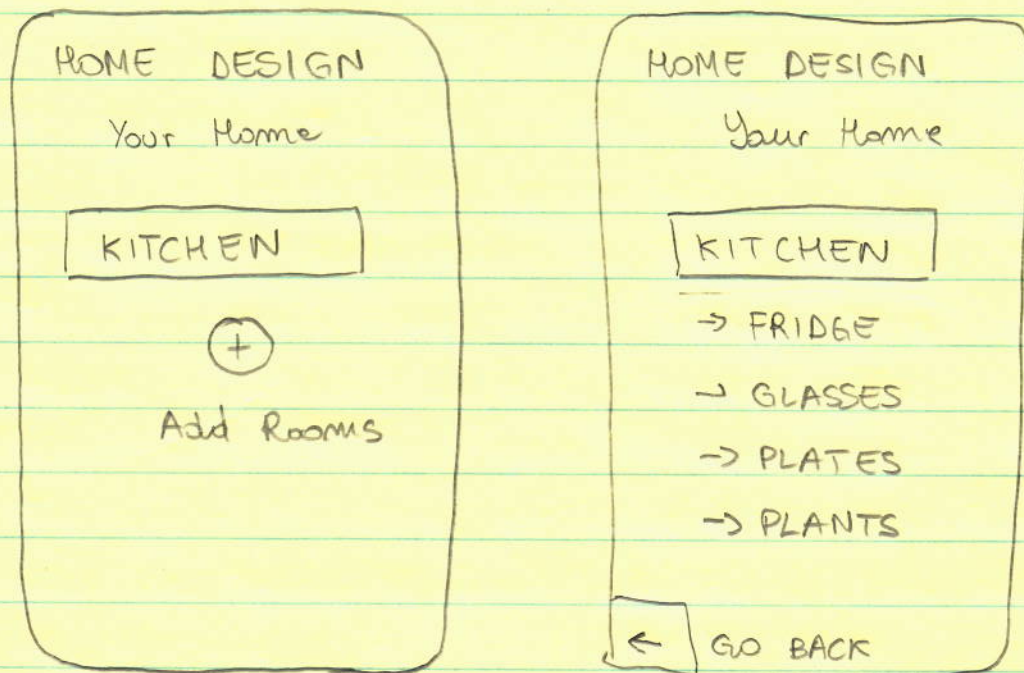 HOME DESIGN
Your Home
KITCHEN
+
Add Rooms
HOME DESIGN
Your Home
KITCHEN
→ FRIDGE
→ GLASSES
→ PLATES
→ PLANTS
← GO BACK